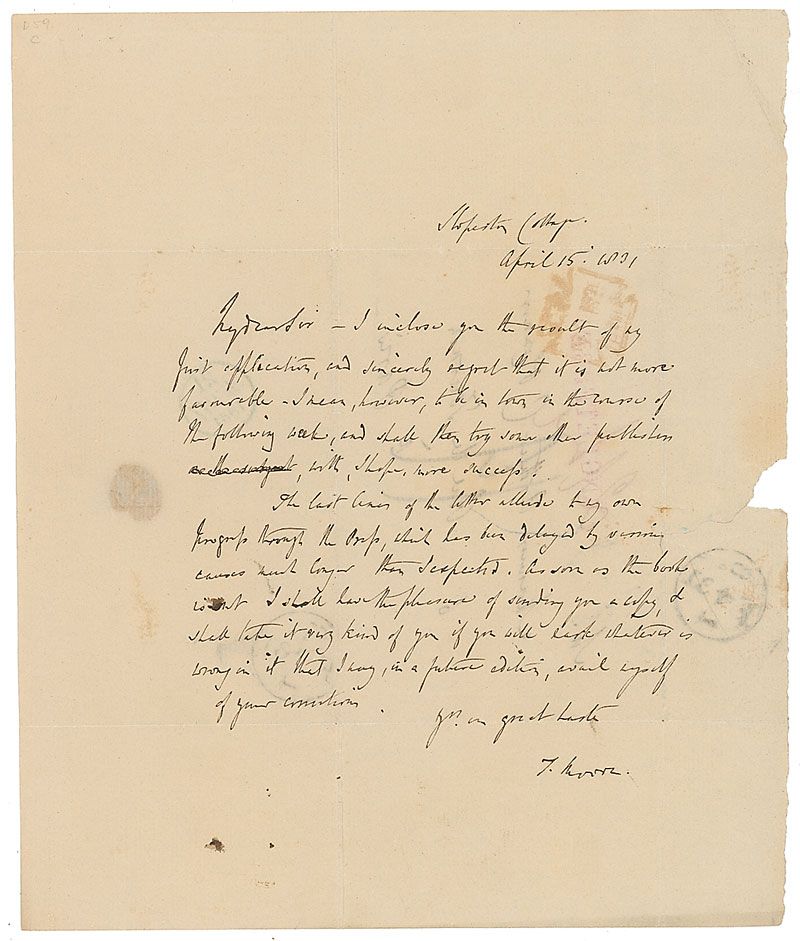 D59.
C
Sloperton Cottage.
April 15. 1831
My dear Sir – I inclose you the result of my
first application, and sincerely regret that it is not more
favourable – I mean, however, to be in town in the course of
the following week, and shall then try some other publishers
, with, I hope, more success.
The last lines of the letter allude to my own
progress through the Press, which has been delayed by various
causes much longer than I expected. As soon as the book
is out I shall have the pleasure of sending you a copy, &
shall take it very kind of you if you will mark whatever is
wrong in it that I may, in a future edition, avail myself
of your corrections.
Yrs. in great haste
T. Moore.